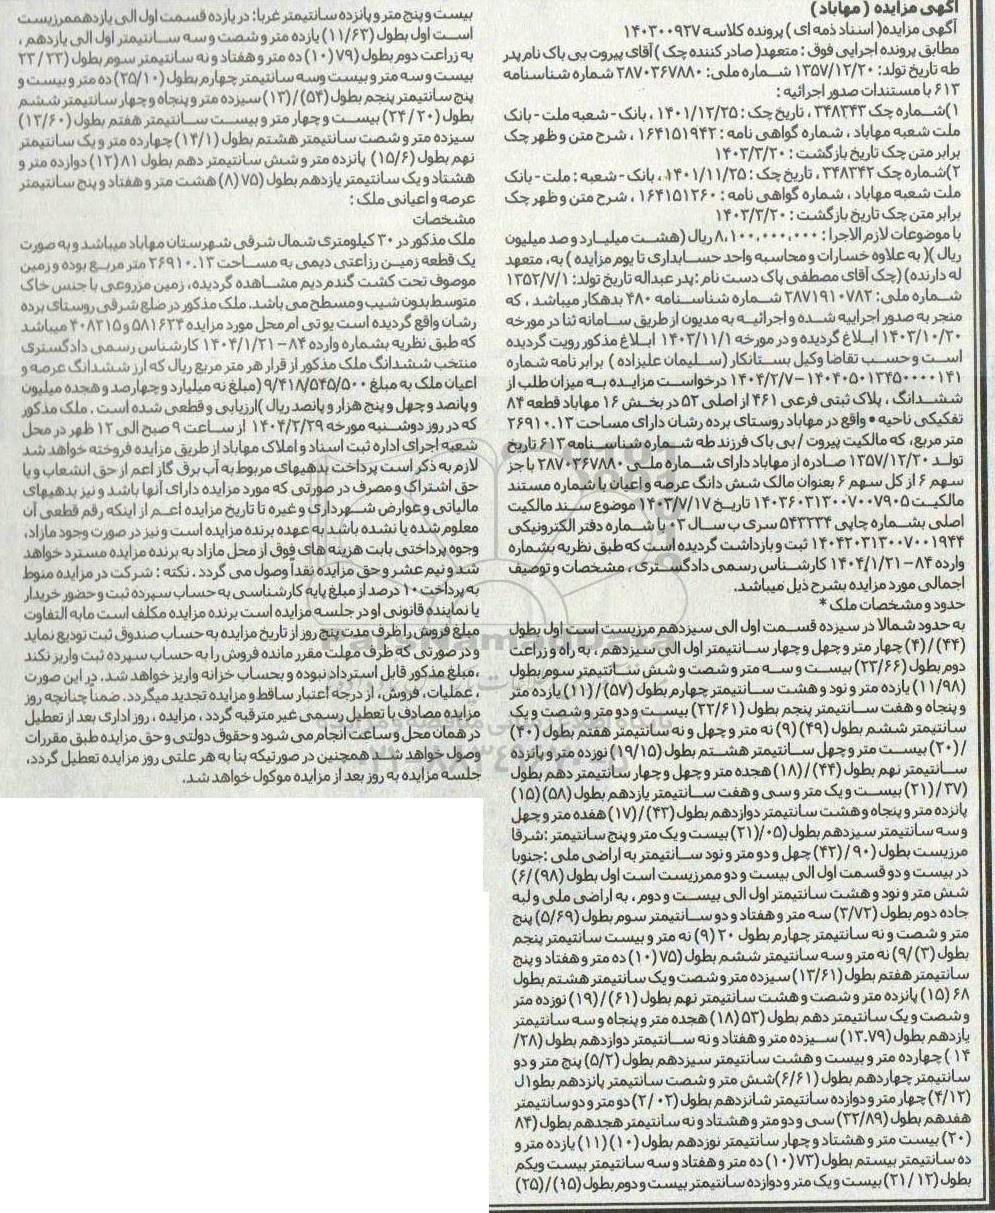 آگهی مزایده ( مهاباد )
آگهی مزایده( اسناد ذمه ای ) پرونده کلاسه ۱۴۰۳۰۰۹۳۷
مطابق پرونده اجرایی فوق : متعهد( صادر کننده چک ) آقای پیروت بی باک نام پدر
طه تاریخ تولد: ۱۳۵۷/۱۲/۲۰ شماره ملی: ۲۸۷۰۳۶۷۸۸۰ شماره شناسنامه
۶۱۳ با مستندات صدور اجرائیه :
۱)شماره چک ۳۴۸۳۴۳ ، تاریخ چک : ۱۴۰۱/۱۲/۲۵ ، بانک - شعبه ملت - بانک
ملت شعبه مهاباد ، شماره گواهی نامه : ۱۶۴۱۵۱۹۴۲ ، شرح متن و ظهر چک
برابر متن چک تاریخ بازگشت : ۱۴۰۳/۳/۲۰
۲)شماره چک ۳۴۸۳۴۲ ، تاریخ چک : ۱۴۰۱/۱۱/۲۵ ، بانک - شعبه : ملت - بانک
ملت شعبه مهاباد ، شماره گواهی نامه : ۱۶۴۱۵۱۲۶۰ ، شرح متن و ظهر چک
برابر متن چک تاریخ بازگشت : ۱۴۰۳/۳/۲۰
با موضوعات لازم الاجرا : ۸,۱۰۰,۰۰۰,۰۰۰ ریال (هشت میلیارد و صد میلیون
ریال )( به علاوه خسارات و محاسبه واحد حسابداری تا یوم مزایده ) به، متعهد
له دارنده) (چک آقای مصطفی پاک دست نام : پدر عبداله تاریخ تولد: ۱۳۵۲/۷/۱
شماره ملی: ۲۸۷۱۹۱۰۷۸۳ شماره شناسنامه ۴۸۰ بدهکار میباشد ، که
منجر به صدور اجراییه شده و اجرائیه به مدیون از طریق سامانه ثنا در مورخه
۱۴۰۳/۱۰/۲۰ ابلاغ گردیده و در مورخه ۱۴۰۳/۱۱/۱ ابلاغ مذکور رویت گردیده
است و حسب تقاضا وکیل بستانکار (سلیمان علیزاده ) برابر نامه شماره
۱۴۰۴۰۵۰۱۳۴۵۰۰۰۰۱۴۱-۱۴۰۴/۲/۷ درخواست مزایده به میزان طلب از
ششدانگ ، پلاک ثبتی فرعی ۴۶۱ از اصلی ۵۲ در بخش ۱۶ مهاباد قطعه ۸۴
تفکیکی ناحیه ۰ واقع در مهاباد روستای برده رشان دارای مساحت ۲۶۹۱۰.۱۳
متر مربع، که مالکیت پیروت / بی باک فرزند طه شماره شناسنامه ۶۱۳ تاریخ
تولد ۱۳۵۷/۱۲/۲۰ صادره از مهاباد دارای شماره ملی ۲۸۷۰۳۶۷۸۸۰ با جز
سهم ۶ از کل سهم ۶ بعنوان مالک شش دانگ عرصه و اعیان با شماره مستند
مالکیت ۱۴۰۳۶۰۳۱۳۰۰۷۰۰۷۹۰۵ تاریخ ۱۴۰۳/۷/۱۷ موضوع سند مالکیت
اصلی بشماره چاپی ۵۴۳۲۳۴ سری ب سال ۰۳ با شماره دفتر الکترونیکی
۱۴۰۴۲۰۳۱۳۰۰۷۰۰۱۹۴۴ ثبت و بازداشت گردیده است که طبق نظریه بشماره
وارده ۸۴-۱۴۰۴/۱/۲۱ کارشناس رسمی دادگستری ، مشخصات و توصیف
اجمالی مورد مزایده بشرح ذیل میباشد.
حدود و مشخصات ملک *
به حدود شمالا در سیزده قسمت اول الی سیزدهم مرزیست است اول بطول
(۴۴) /(۴) چهار متر و چهل و چهار سانتیمتر اول الی سیزدهم ، به راه و زراعت
دوم بطول (۲۳/۶۶) بیست و سه متر و شصت و شش سانتیمتر سوم بطول
(۱۱/۹۸) یازده متر و نود و هشت سانتیمتر چهارم بطول (۵۷) /(۱۱) یازده متر
و پنجاه و هفت سانتیمتر پنجم بطول (۲۲/۶۱) بیست و دو متر و شصت و یک
سانتیمتر ششم بطول (۴۹) (۹) نه متر و چهل و نه سانتیمتر هفتم بطول (۴۰)
/(۲۰) بیست متر و چهل سانتیمتر هشتم بطول (۱۹/۱۵) نوزده متر و پانزده
سانتیمتر نهم بطول (۴۴) /(۱۸) هجده متر و چهل و چهار سانتیمتر دهم بطول
(۳۷) /(۲۱) بیست و یک متر و سی و هفت سانتیمتر یازدهم بطول (۵۸) (۱۵)
پانزده متر و پنجاه و هشت سانتیمتر دوازدهم بطول (۴۳) /(۱۷) هفده متر و چهل
و سه سانتیمتر سیزدهم بطول (۰۵/(۲۱) بیست و یک متر و پنج سانتیمتر : شرقا
مرزیست بطول (۹۰ /(۴۲) چهل و دو متر و نود سانتیمتر به اراضی ملی : جنوبا
در بیست و دو قسمت اول الی بیست و دو ممرزیست است اول بطول (۹۸) /(۶
شش متر و نود و هشت سانتیمتر اول الی بیست و دوم ، به اراضی ملی و لبه
جاده دوم بطول (۳/۷۲) سه متر و هفتاد و دو سانتیمتر سوم بطول (۵/۶۹) پنج
متر و شصت و نه سانتیمتر چهارم بطول ۲۰ (۹) نه متر و بیست سانتیمتر پنجم
بطول (۳) /(۹ نه متر و سه سانتیمتر ششم بطول (۷۵ (۱۰) ده متر و هفتاد و پنج
سانتیمتر هفتم بطول (۱۳/۶۱) سیزده متر و شصت و یک سانتیمتر هشتم بطول
۶۸ (۱۵) پانزده متر و شصت و هشت سانتیمتر نهم بطول (۶۱) /(۱۹) نوزده متر
و شصت و یک سانتیمتر دهم بطول (۵۳ (۱۸) هجده متر و پنجاه و سه سانتیمتر
یازدهم بطول (۱۳.۷۹) سیزده متر و هفتاد و نه سانتیمتر دوازدهم بطول (۲۸/
۱۴ ) چهارده متر و بیست و هشت سانتیمتر سیزدهم بطول (۵/۲) پنج متر و دو
سانتیمتر چهاردهم بطول (۶/۶۱) شش متر و شصت سانتیمتر پانزدهم بطو ل۱
(۴/۱۲) چهار متر و دوازده سانتیمتر شانزدهم بطول (۰۲ /۲) دو متر و دو سانتیمتر
هفدهم بطول (۳۲/۸۹) سی و دو متر و هشتاد و نه سانتیمتر هجدهم بطول (۸۴
(۲۰) بیست متر و هشتاد و چهار سانتیمتر نوزدهم بطول (۱۰) (۱۱) یازده متر و
ده سانتیمتر بیستم بطول (۷۳ (۱۰) ده متر و هفتاد و سه سانتیمتر بیست ویکم
بطول (۱۲ /۲۱) بیست و یک متر و دوازده سانتیمتر بیست و دوم بطول (۱۵) /(۲۵)
بیست و پنج متر و پانزده سانتیمتر غربا: در یازده قسمت اول الی یازدهممرزیست
است اول بطول (۱۱/۶۳) یازده متر و شصت و سه سانتیمتر اول الی یازدهم ،
به زراعت دوم بطول (۷۹ (۱۰) ده متر و هفتاد و نه سانتیمتر سوم بطول (۲۳ / ۲۳
بیست و سه متر و بیست وسه سانتیمتر چهارم بطول (۲۵/۱۰) ده متر و بیست و
پنج سانتیمتر پنجم بطول (۵۴) /(۱۳) سیزده متر و پنجاه و چهار سانتیمتر ششم
بطول (۲۰ /۲۴) بیست و چهار متر و بیست سانتیمتر هفتم بطول (۱۳/۶۰)
سیزده متر و شصت سانتیمتر هشتم بطول (۱۴/۱) چهارده متر و یک سانتیمتر
نهم بطول (۱۵/۶) پانزده متر و شش سانتیمتر دهم بطول ۸۱ (۱۲) دوازده متر و
هشتاد و یک سانتیمتر یازدهم بطول (۷۵ (۸) هشت متر و هفتاد و پنج سانتیمتر
عرصه و اعیانی ملک :
مشخصات
ملک مذکور در ۳۰ کیلومتری شمال شرقی شهرستان مهاباد میباشد و به صورت
یک قطعه زمین زراعتی دیمی به مساحت ۲۶۹۱۰.۱۳ متر مربع بوده و زمین
موصوف تحت کشت گندم دیم مشاهده گردیده، زمین مزروعی با جنس خاک
متوسط بدون شیب و مسطح می باشد. ملک مذکور در ضلع شرقی روستای برده
رشان واقع گردیده است یو تی ام محل مورد مزایده ۵۸۱۶۲۴ و ۴۰۸۲۱۵ میباشد
که طبق نظریه بشماره وارده ۸۴-۱۴۰۴/۱/۲۱ کارشناس رسمی دادگستری
منتخب ششدانگ ملک مذکور از قرار هر متر مربع ریال که ارز ششدانگ عرصه و
اعیان ملک به مبلغ ۹/۴۱۸/۵۴۵/۵۰۰ (مبلغ نه میلیارد و چهارصد و هجده میلیون
و پانصد و چهل و پنج هزار و پانصد ریال )ارزیابی و قطعی شده است . ملک مذکور
که در روز دوشنبه مورخه ۱۴۰۴/۲/۲۹ از ساعت ۹ صبح الی ۱۲ ظهر در محل
شعبه اجرای اداره ثبت اسناد و املاک مهاباد از طریق مزایده فروخته خواهد شد
لازم به ذکر است پرداخت بدهیهای مربوط به آب برق گاز اعم از حق انشعاب و یا
حق اشتراک و مصرف در صورتی که مورد مزایده دارای آنها باشد و نیز بدهیهای
مالیاتی و عوارض شهرداری و غیره تا تاریخ مزایده اعم از اینکه رقم قطعی آن
معلوم شده یا نشده باشد به عهده برنده مزایده است و نیز در صورت وجود مازاد،
وجوه پرداختی بابت هزینه های فوق از محل مازاد به برنده مزایده مسترد خواهد
شد و نیم عشر و حق مزایده نقداً وصول می گردد . نکته : شرکت در مزایده منوط
به پرداخت ۱۰ درصد از مبلغ پایه کارشناسی به حساب سپرده ثبت و حضور خریدار
یا نماینده قانونی او در جلسه مزایده است برنده مزایده مکلف است مابه التفاوت
مبلغ فروش را ظرف مدت پنج روز از تاریخ مزایده به حساب صندوق ثبت تودیع نماید
و در صورتی که ظرف مهلت مقرر مانده فروش را به حساب سپرده ثبت واریز نکند
،مبلغ مذکور قابل استرداد نبوده و بحساب خزانه واریز خواهد شد. در این صورت
، عملیات، فروش، از درجه اعتبار ساقط و مزایده تجدید میگردد. ضمناً چنانچه روز
مزایده مصادف با تعطیل رسمی غیر مترقبه گردد ، مزایده ، روز اداری بعد از تعطیل
در همان محل و ساعت انجام می شود و حقوق دولتی و حق مزایده طبق مقررات
وصول خواهد شد. همچنین در صورتیکه بنا به هر علتی روز مزایده تعطیل گردد،
جلسه مزایده به روز بعد از مزایده موکول خواهد شد.